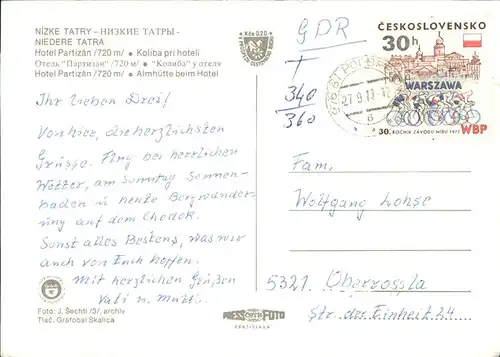 NÍZKE TATRY – НИЗКИЕ ТАТРЫ –
NIEDERE TATRA
Hotel Partizán /720 m/ • Koliba pri hoteli
Отель "Партизан" /720 м/ • "Колиба" у отеля
Hotel Partizán /720 m/ • Almhütte beim Hotel
Kčs 0,20
GDR
T
340
360
ČESKOSLOVENSKO
30h
WARSZAWA
30. ROČNÍK ZÁVODU MÍRU 1977 WBP
Ihr lieben Drei!
Von hier, die herzlichsten
Grüsse. Flug bei herrlichen
Wetter, am Sonntag Sonnen-
baden u heute Bergwander-
ung auf dem Chodek.
Sonst alles Bestens, was wir
auch von Euch hoffen.
Mit herzlichen Grüßen
Vati u. Mutti.
Fam.
Wolfgang Lohse
5321 Oberrossla
Str. der Einheit 24
Foto: J. Šechtl /3/, archív
Tlač: Grafobal Skalica
PRESSFOTO
BRATISLAVA